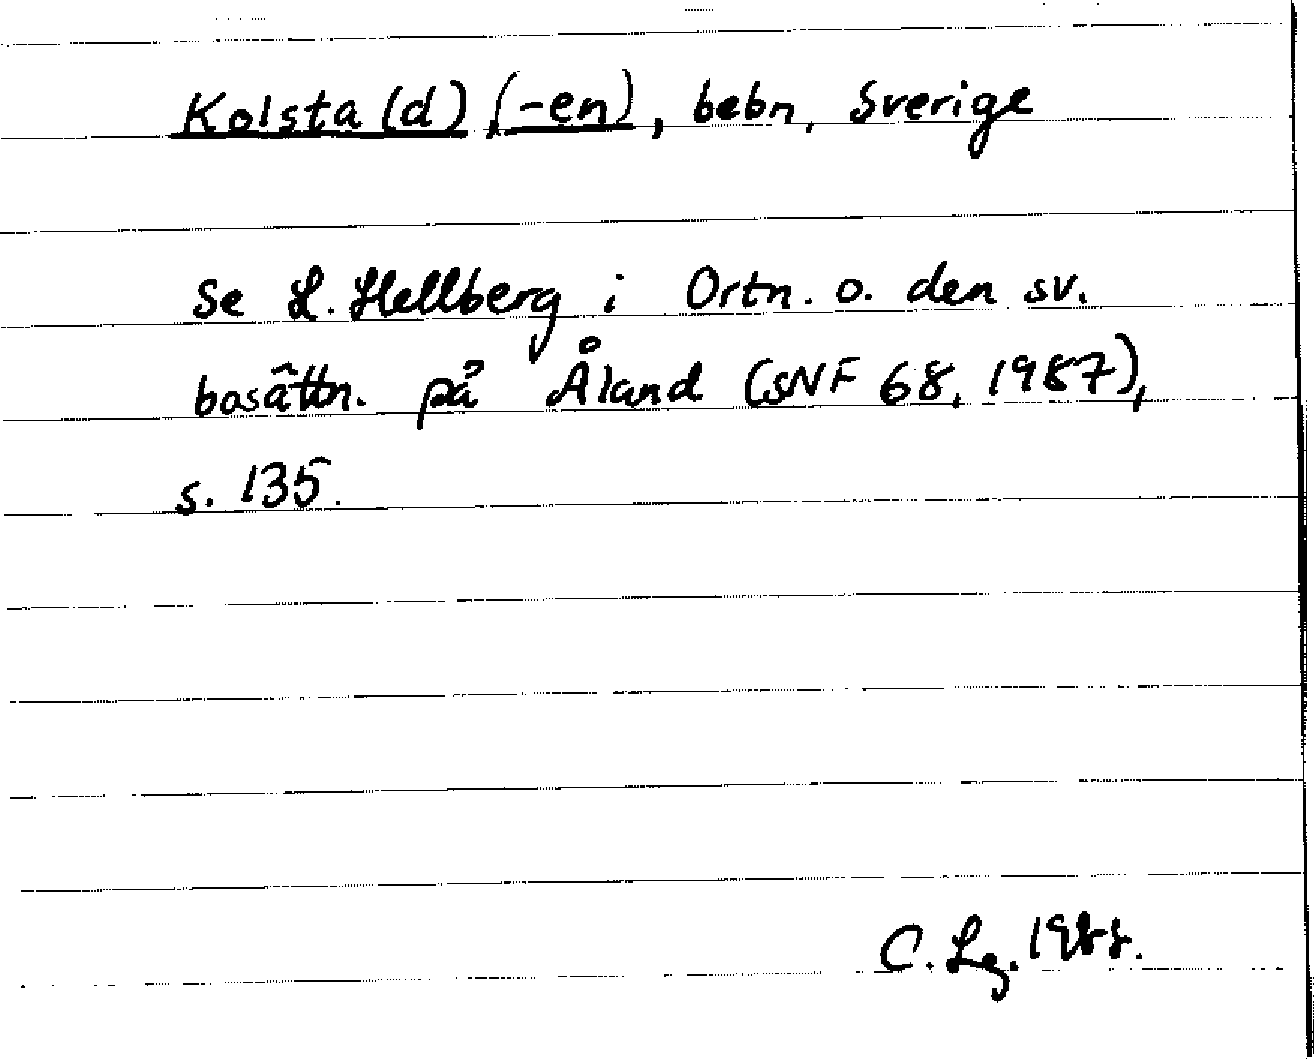 Kolsta (d) (-en), bebn, Sverige
Se L. Hellberg i Ortn. o. den sv.
bosättn. på Åland (SNF 68, 1987),
s. 135.
C. Lg. 1988.